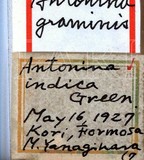 Antonina
graminis
Antonina
indica
Green
May 16, 1927
Kori, Formosa
M. Yanagihara